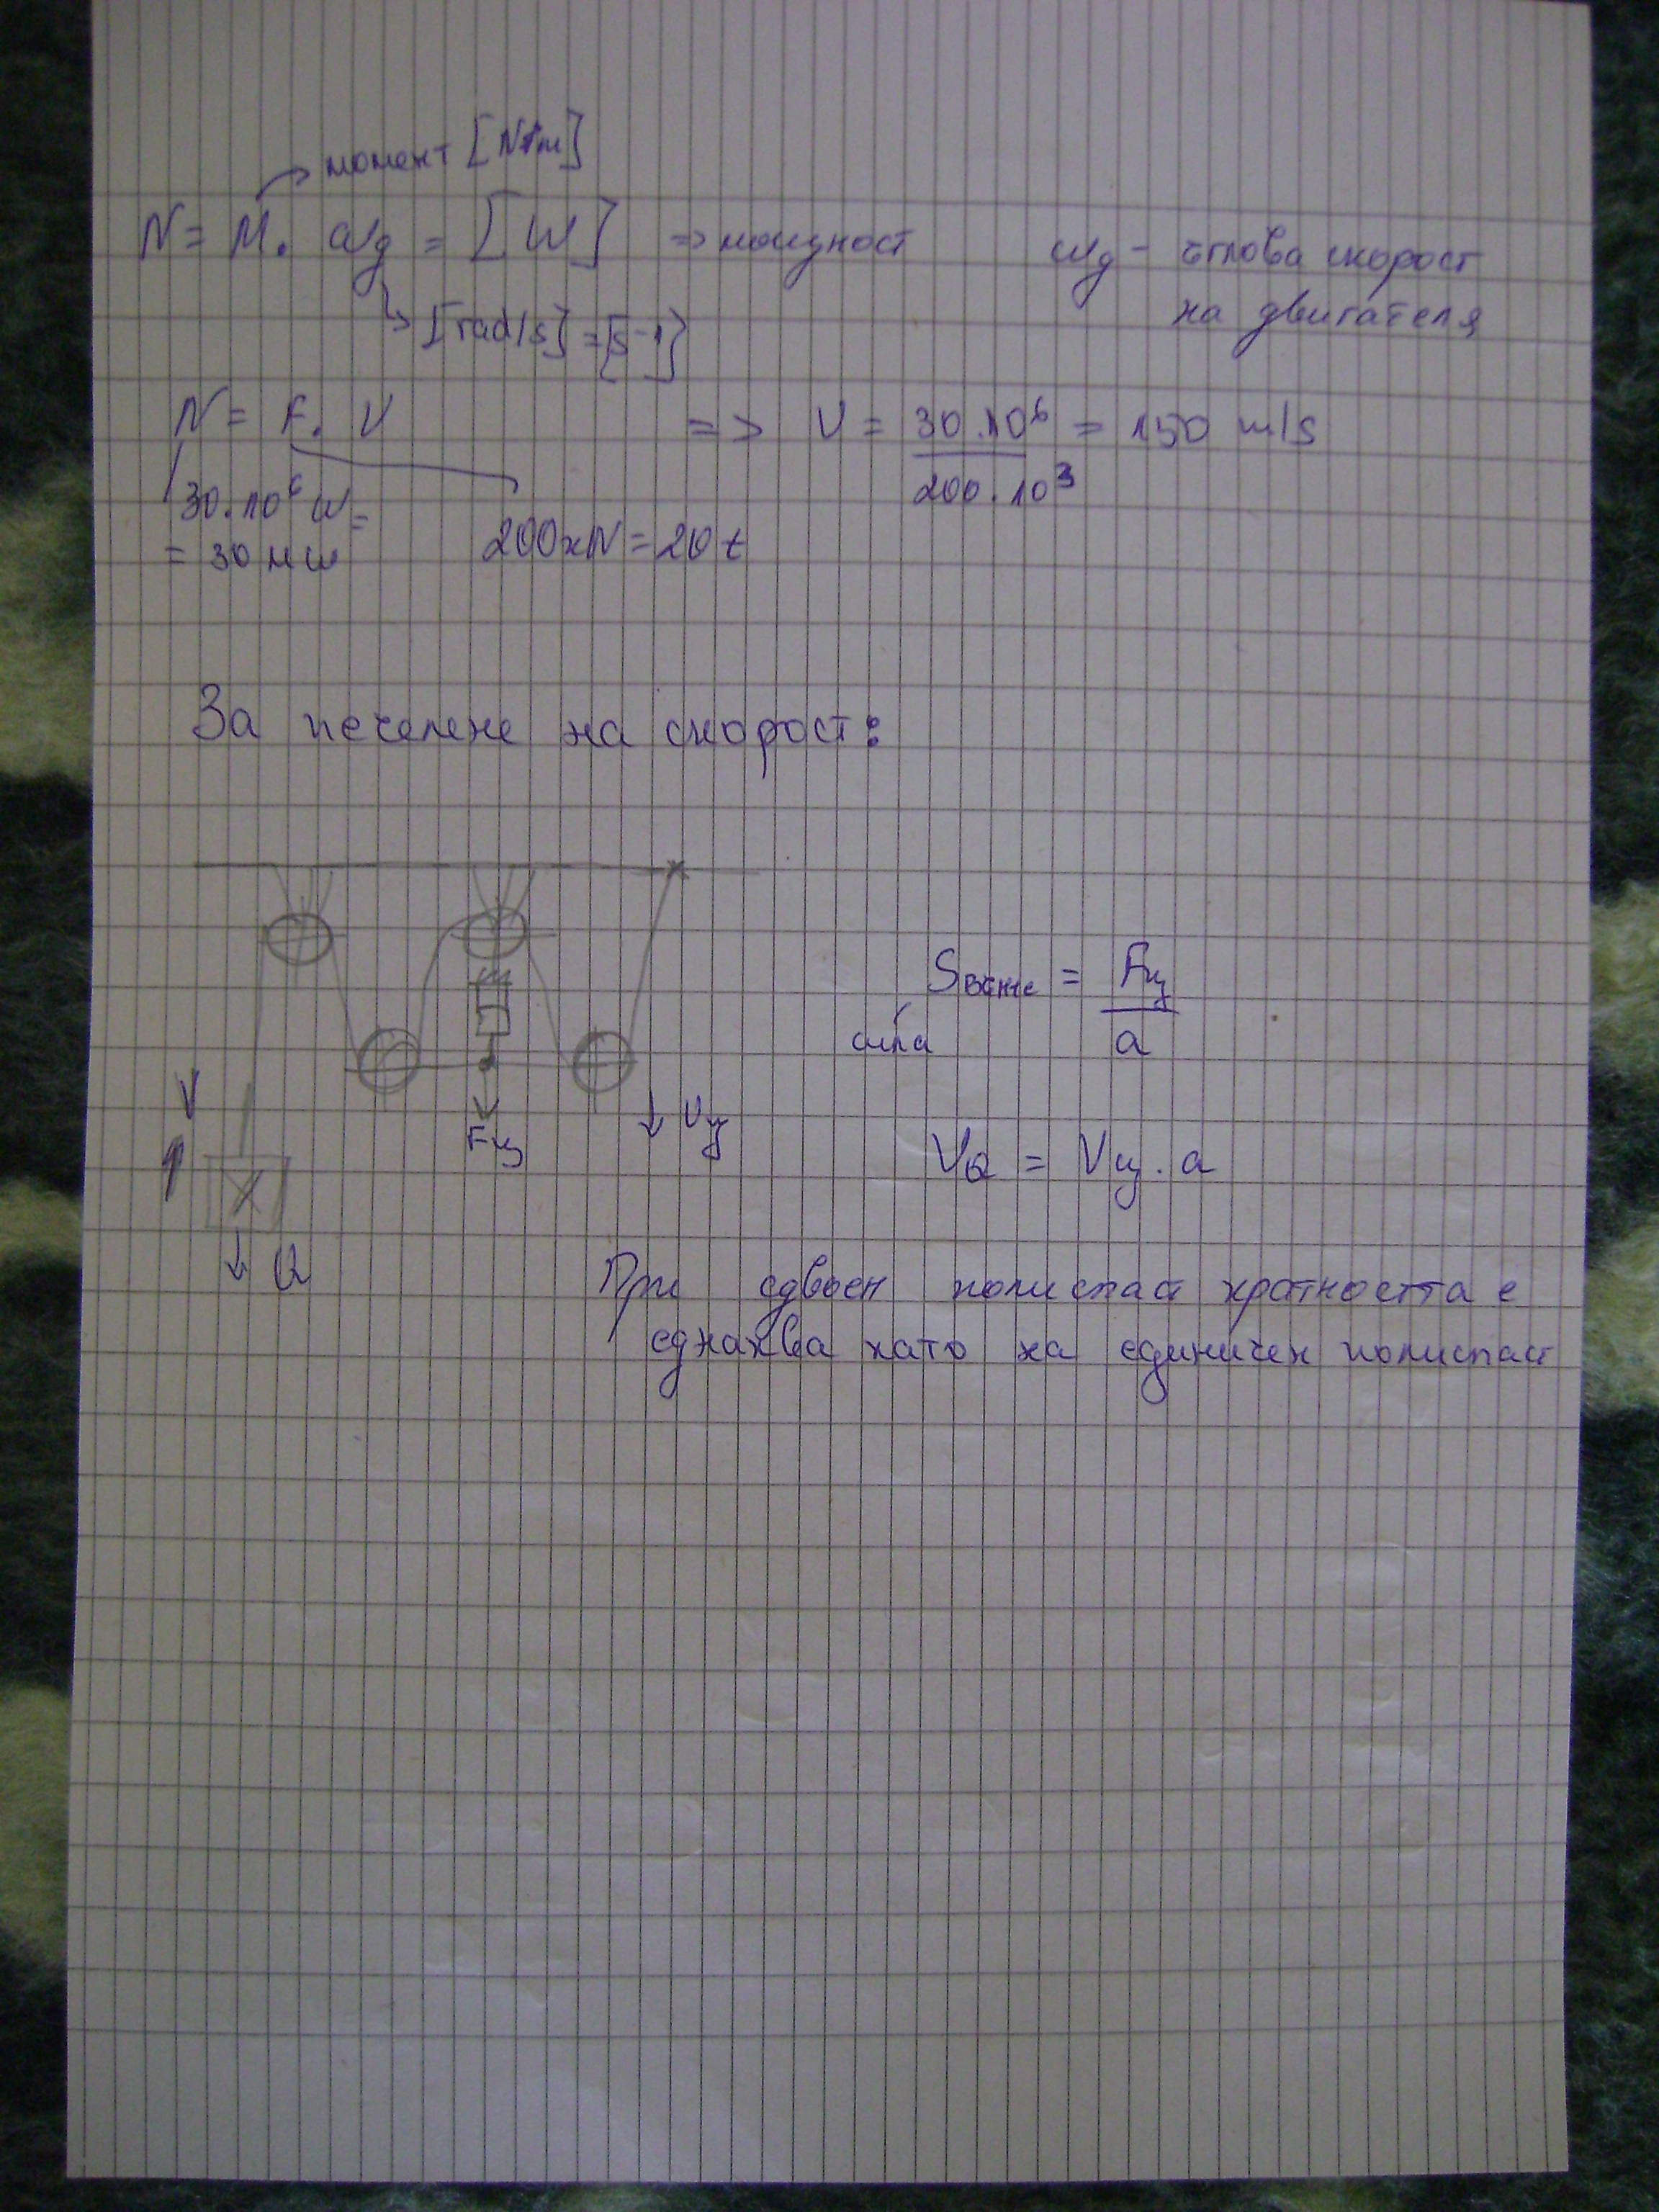 момент [N*m]
N = M. ωg = [W] => мощност ωg - ъглова скорост
на двигателя
[rad/s] = [s-1]
N = F. V => V = 30.10⁶ = 150 m/s
200.10³
30.10⁶ W =
= 30 MW 200кN = 20 t
За печелене на скорост:
Sвъже = Fц
сила a
V Vц
Fц
VQ = Vц . a
Q
При сдвоен полиспаст кратността е
еднаква като на единичен полиспаст